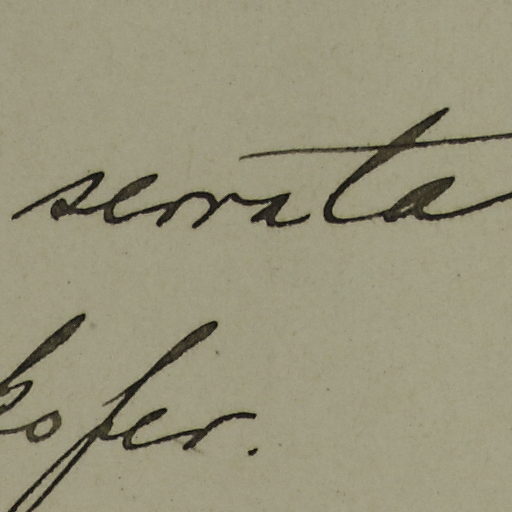 serrata
hofer.